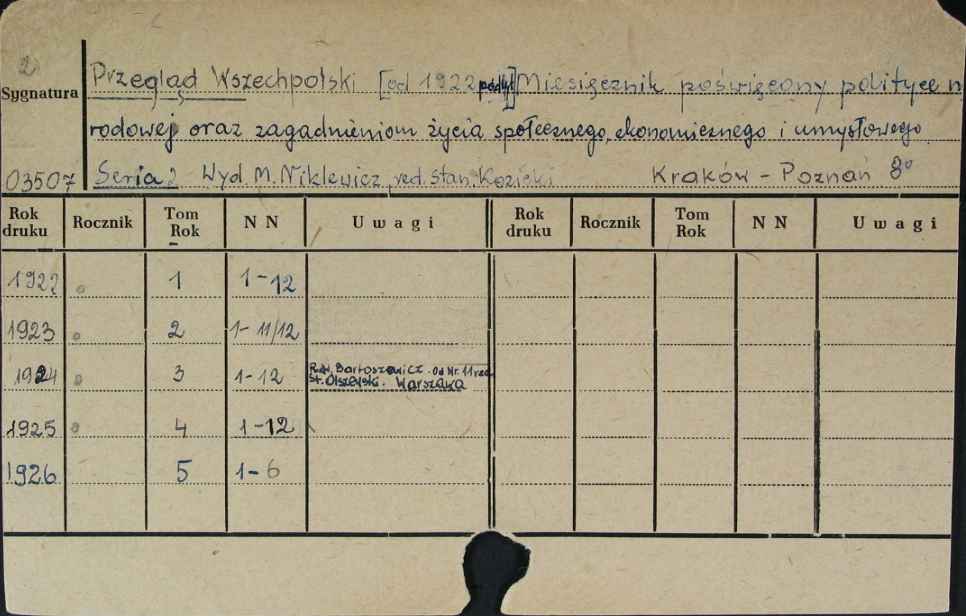 2
Sygnatura
Przegląd Wszechpolski [od 1922 podtyt] Miesięcznik poświęcony polityce n
rodowej oraz zagadnieniom życia społecznego, ekonomicznego i umysłowego
03507 Seria 2 Wyd. M. Niklewicz, red. Stan. Kozicki Kraków - Poznań 8°
Rok druku Rocznik Tom Rok NN Uwagi Rok druku Rocznik Tom Rok NN Uwagi
1922 1 1-12
1923 2 1-11/12
1924 3 1-12 Red. Bartoszewicz. Od Nr. 11 red.
St. Olszewski. Warszawa
1925 4 1-12
1926 5 1-6